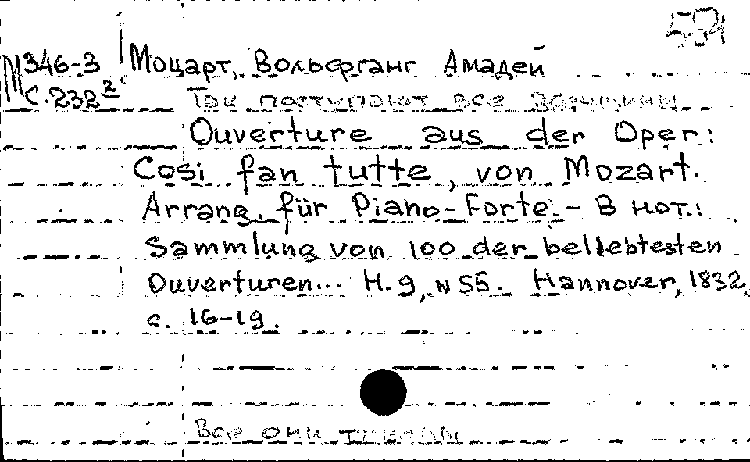 M 346-3 Моцарт, Вольфганг Амадей
С.232²
Так поступают все женщины
Ouverture aus der Oper:
Cosi fan tutte, von Mozart.
Arrang. für Piano-Forte. - В нот.:
Sammlung von 100 der beliebtesten
Ouverturen... H.9, N 55. Hannover, 1832,
с. 16-19.
Все они таковы